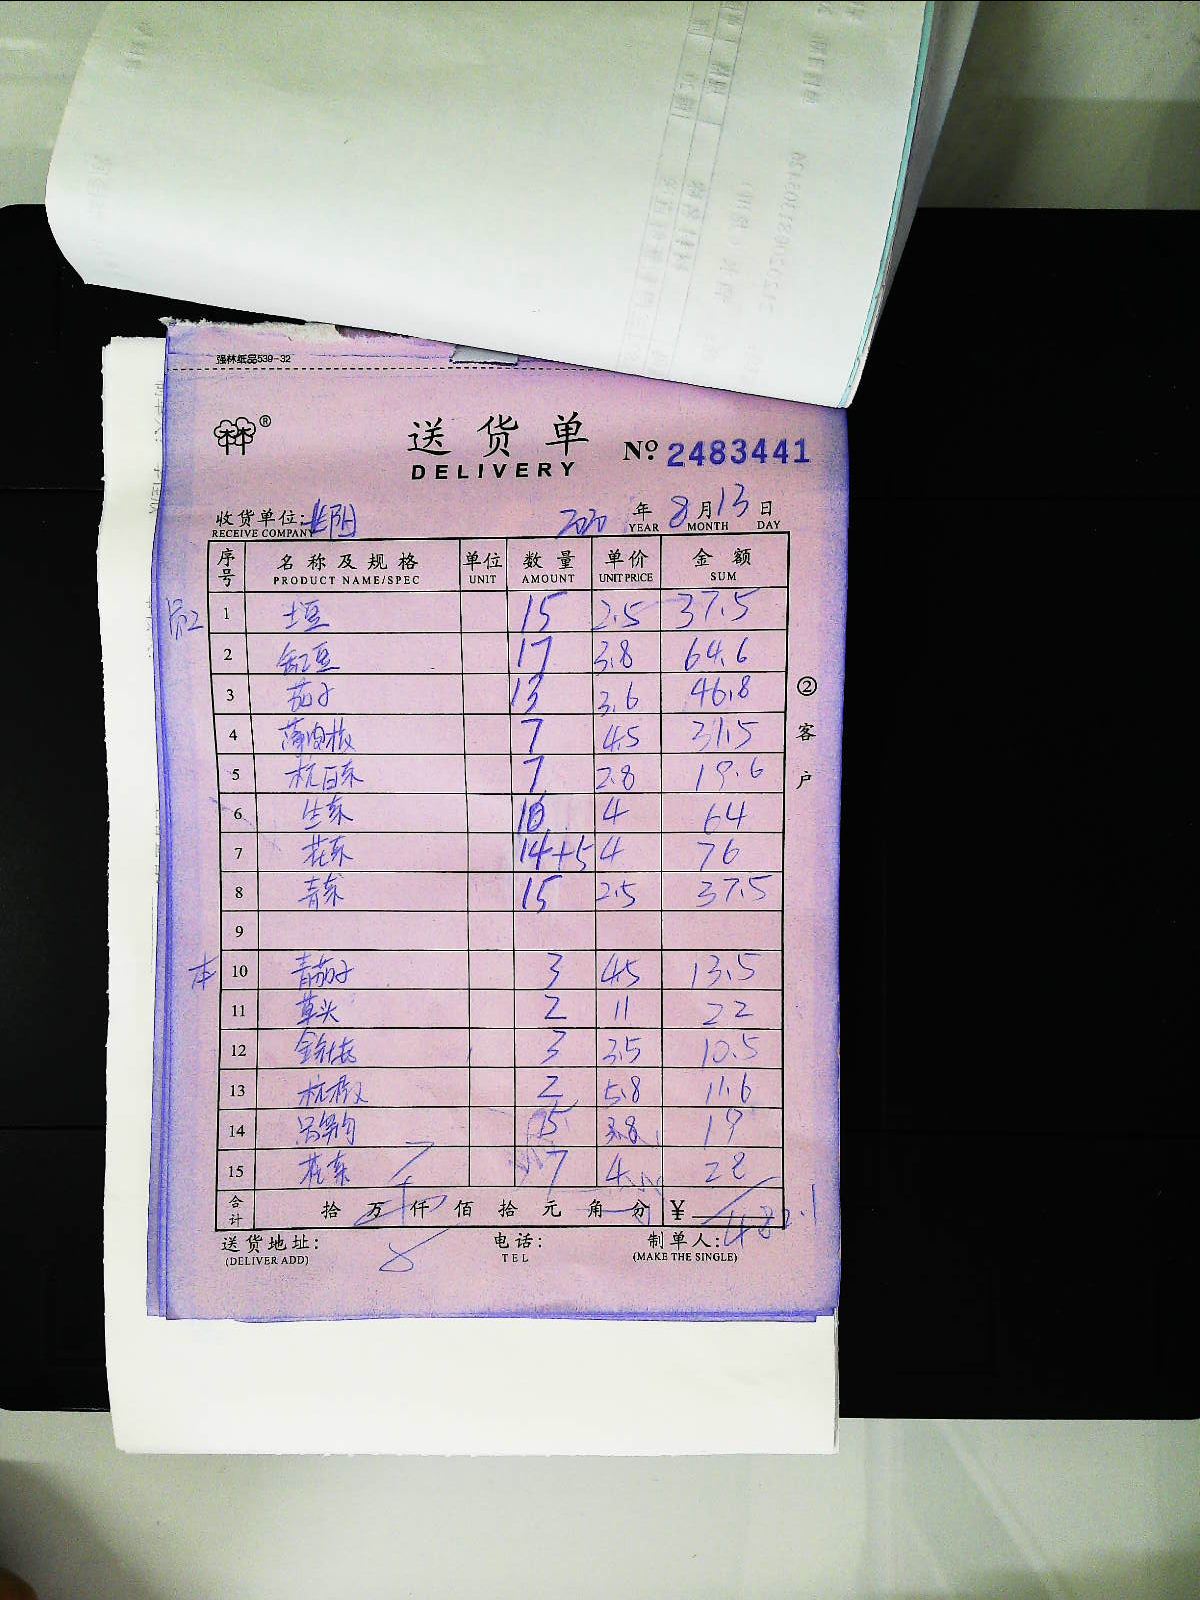 强林纸品539-32
林® 送货单 № 2483441
DELIVERY
收货单位: 2020 年 8 月 13 日
RECEIVE COMPANY YEAR MONTH DAY
序号 名称及规格 单位 数量 单价 金额
PRODUCT NAME/SPEC UNIT AMOUNT UNIT PRICE SUM
员工 1 土豆 15 2.5 37.5
2 缸豆 17 3.8 64.6
3 茄子 13 3.6 46.8
4 薄肉椒 7 4.5 31.5
5 杭白菜 7 2.8 19.6
6 生菜 16 4 64
7 花菜 14+5 4 76
8 青菜 15 2.5 37.5
9
本 10 青茄子 3 4.5 13.5
11 草头 2 11 22
12 3 3.5 10.5
13 杭椒 2 5.8 11.6
14 5 3.8 19
15 花菜 7 4 28
合计 拾 万 仟 佰 拾 元 角 分 ¥ 482.1
送货地址: 电话: 制单人:
(DELIVER ADD) TEL (MAKE THE SINGLE)
②客户